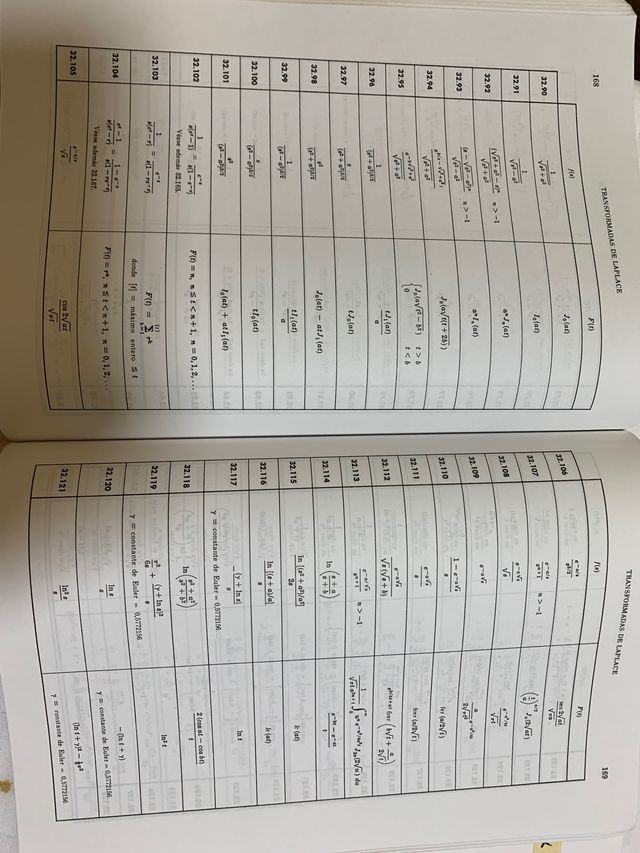 168
TRANSFORMADAS DE LAPLACE
f(s) F(t)
32.90 1/√(s²+a²) J₀(at)
32.91 1/√(s²−a²) I₀(at)
32.92 (√(s²+a²)−s)ⁿ/√(s²+a²) n > −1 aⁿJₙ(at)
32.93 (s−√(s²−a²))ⁿ/√(s²−a²) n > −1 aⁿIₙ(at)
32.94 J₀(a√(t(t+2b)))
32.95 e^(−b√(s²+a²))/√(s²+a²) { J₀(a√(t²−b²)) t > b
0 t < b
32.96 1/(s²+a²)^(3/2) tJ₁(at)/a
32.97 s/(s²+a²)^(3/2) tJ₀(at)
32.98 s²/(s²+a²)^(3/2) J₀(at) − atJ₁(at)
32.99 1/(s²−a²)^(3/2) tI₁(at)/a
32.100 s/(s²−a²)^(3/2) tI₀(at)
32.101 s²/(s²−a²)^(3/2) I₀(at) + atI₁(at)
32.102 1/s(eˢ−1) = e⁻ˢ/s(1−e⁻ˢ) F(t) = n, n ≦ t < n+1, n = 0, 1, 2, ...
Véase además 32.165.
32.103 1/s(eˢ−r) = e⁻ˢ/s(1−re⁻ˢ) F(t) = Σ_{k=1}^{[t]} rᵏ
donde [t] = máximo entero ≦ t
32.104 (eˢ−1)/s(eˢ−r) = (1−e⁻ˢ)/s(1−re⁻ˢ) F(t) = rⁿ, n ≦ t < n+1, n = 0, 1, 2, ...
Véase además 32.167.
32.105 e^(−a/s)/√s cos 2√(at)/√(πt)
TRANSFORMADAS DE LAPLACE
169
f(s) F(t)
32.106 e^(−a/s)/s^(3/2) sen 2√(at)/√(πa)
32.107 e^(−a/s)/s^(n+1) n > −1 (t/a)^(n/2) Jₙ(2√(at))
32.108 e^(−a√s)/√s e^(−a²/4t)/√(πt)
32.109 e^(−a√s) a/(2√(πt³)) e^(−a²/4t)
32.110 (1−e^(−a√s))/s fer (a/2√t)
32.111 e^(−a√s)/s fcer (a/2√t)
32.112 e^(−a√s)/√s(√s+b) e^(b(bt+a)) fcer (b√t + a/2√t)
32.113 e^(−a/√s)/s^(n+1) n > −1
32.114 ln ((s+a)/(s+b)) (e^(−bt) − e^(−at))/t
32.115 ln [(s²+a²)/a²]/2s
32.116 ln [(s+a)/a]/s
32.117 −(γ + ln s)/s ln t
γ = constante de Euler = 0,5772156...
32.118 ln ((s²+a²)/(s²+b²)) 2(cos at − cos bt)/t
32.119 π²/6s + (γ + ln s)²/s ln² t
γ = constante de Euler = 0,5772156...
32.120 ln s/s −(ln t + γ)
γ = constante de Euler = 0,5772156
32.121 ln² s/s (ln t + γ)² − ⅙π²
γ = constante de Euler = 0,5772156